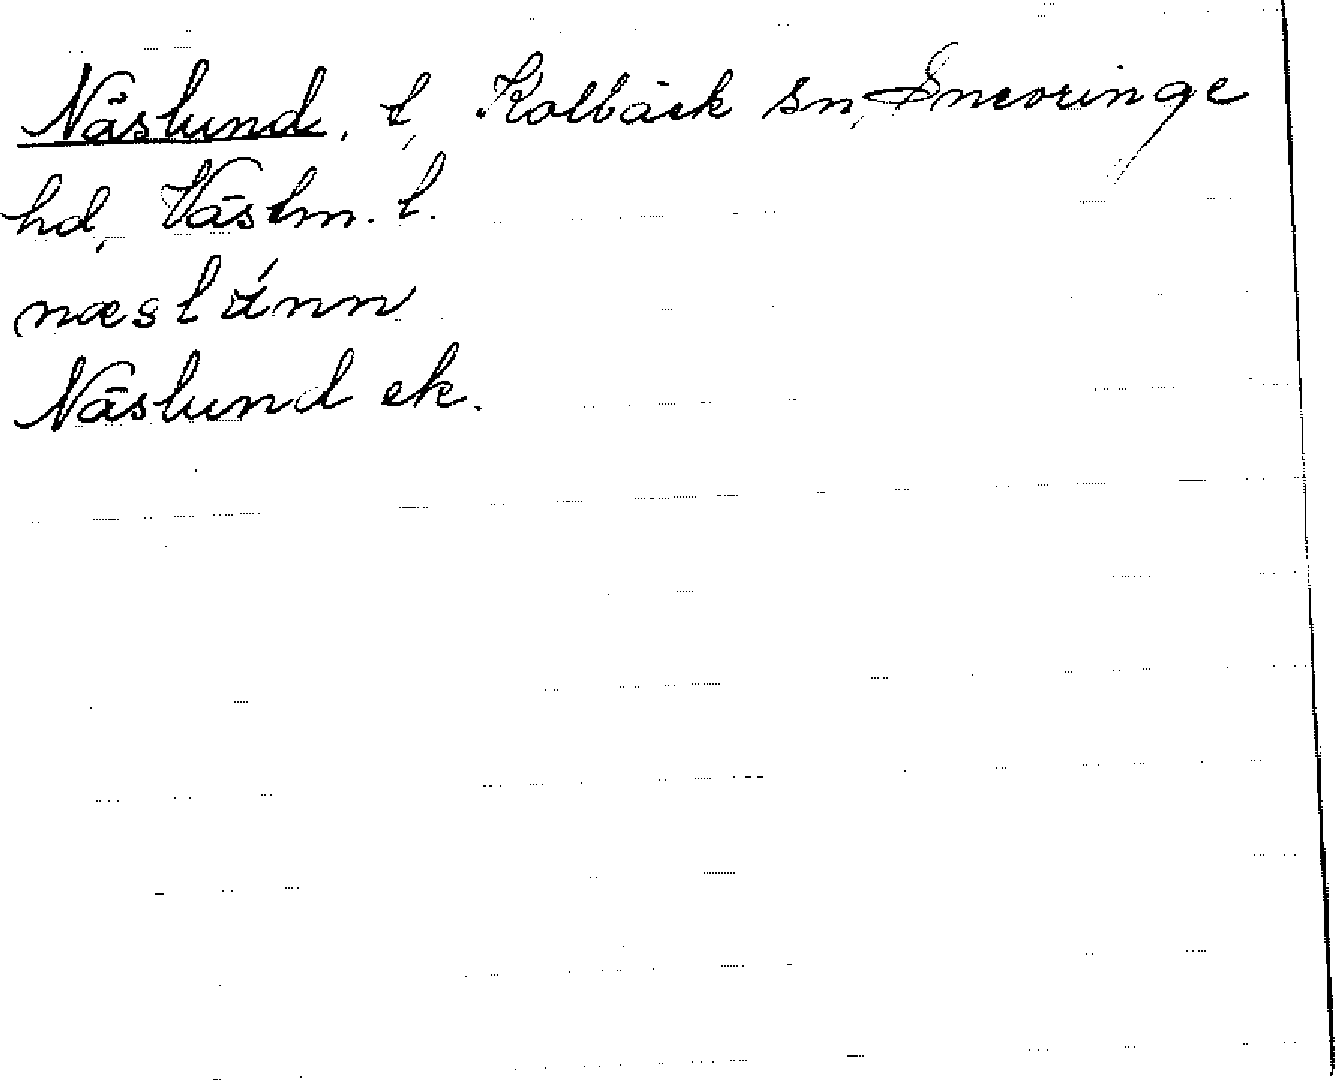 Näslund, t, Kolbäck sn, Snevringe
hd, Västm. l.
næslúnn
Näslund ek.